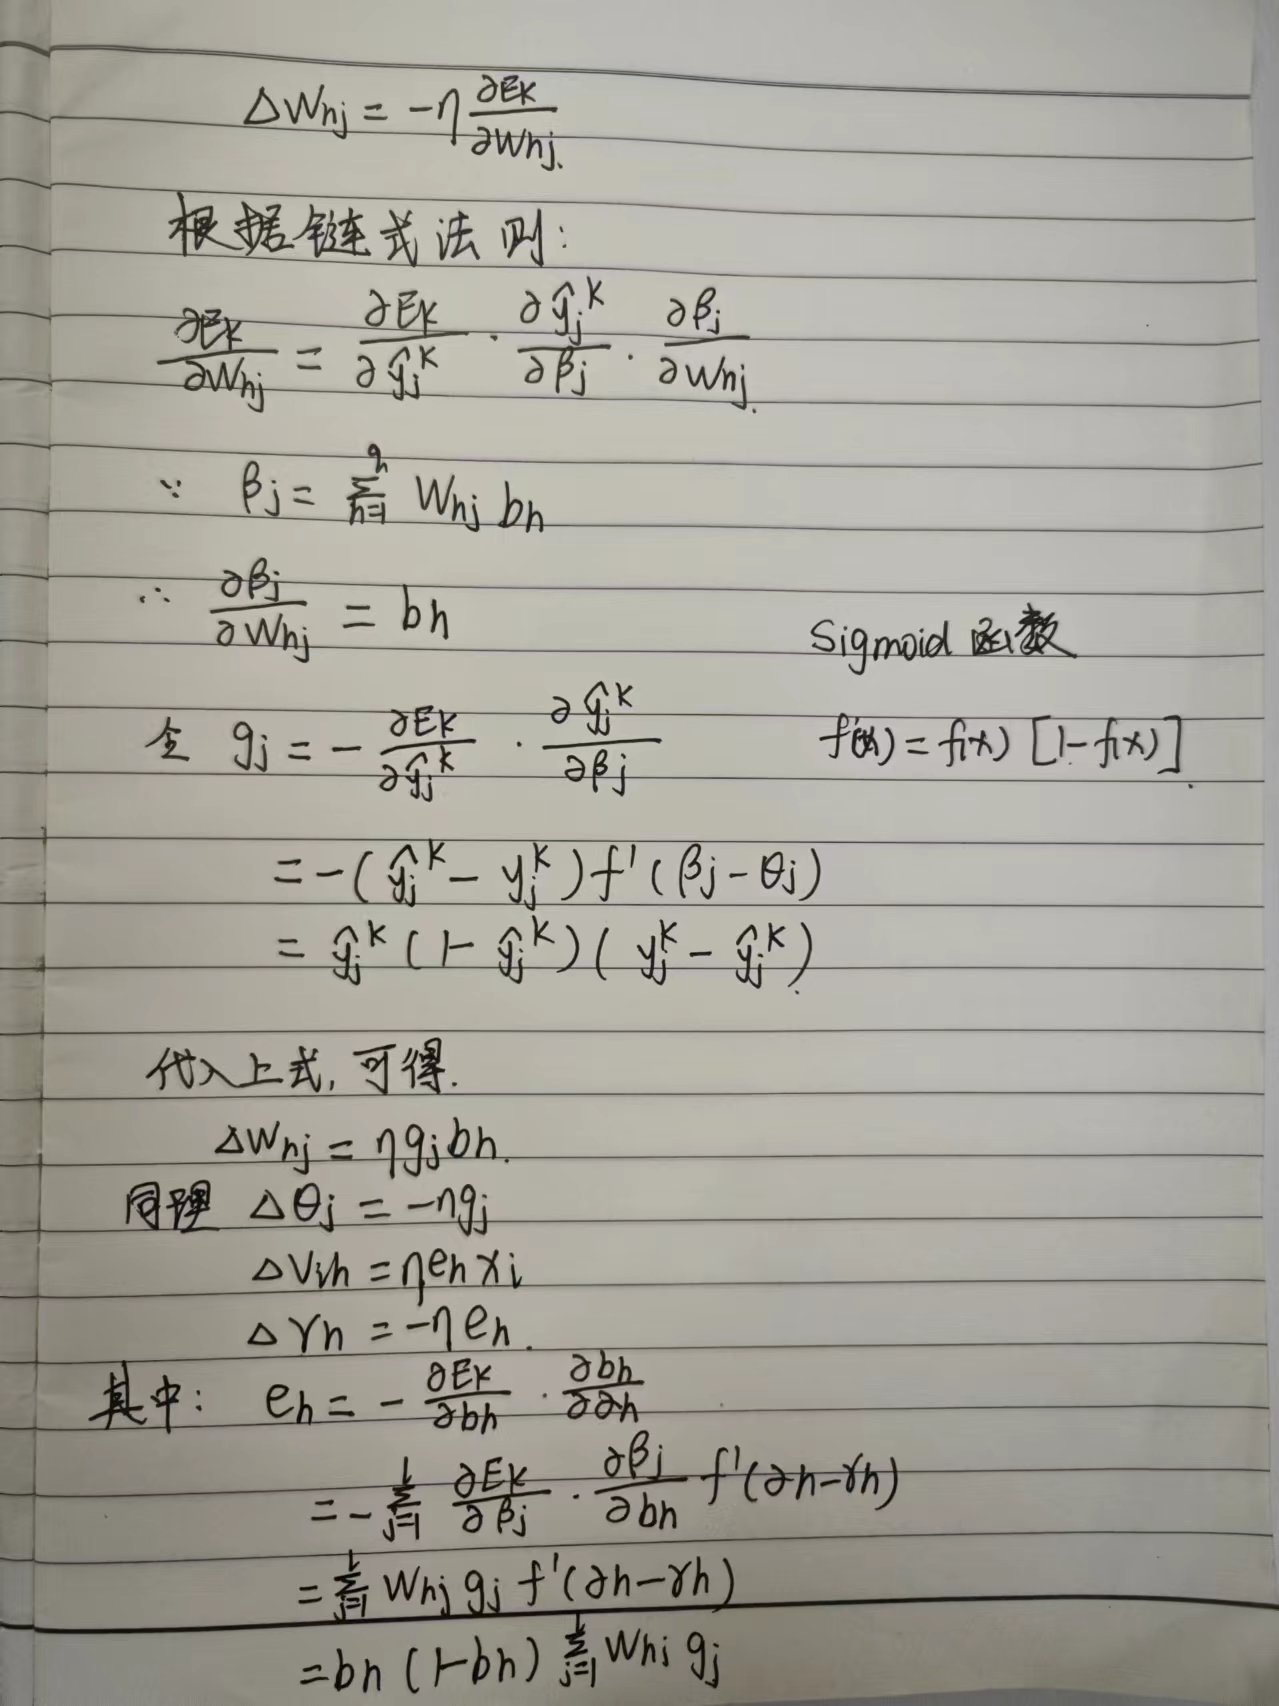 ΔWhj = -η ∂Ek/∂Whj.
根据链式法则:
∂Ek/∂Whj = ∂Ek/∂ŷj^k · ∂ŷj^k/∂βj · ∂βj/∂Whj.
∵ βj = Σ_{h=1}^{q} Whj bh
∴ ∂βj/∂Whj = bh
Sigmoid 函数
令 gj = - ∂Ek/∂ŷj^k · ∂ŷj^k/∂βj
f'(x) = f(x) [1-f(x)].
= -(ŷj^k - yj^k) f'(βj - θj)
= ŷj^k (1- ŷj^k) (yj^k - ŷj^k).
代入上式, 可得.
ΔWhj = ηgjbh.
同理 Δθj = -ηgj
ΔVih = ηeh xi
Δγh = -ηeh.
其中: eh = - ∂Ek/∂bh · ∂bh/∂αh
= - Σ_{j=1}^{l} ∂Ek/∂βj · ∂βj/∂bh f'(αh-γh)
= Σ_{j=1}^{l} Whj gj f'(αh-γh)
= bh (1-bh) Σ_{j=1}^{l} Whj gj